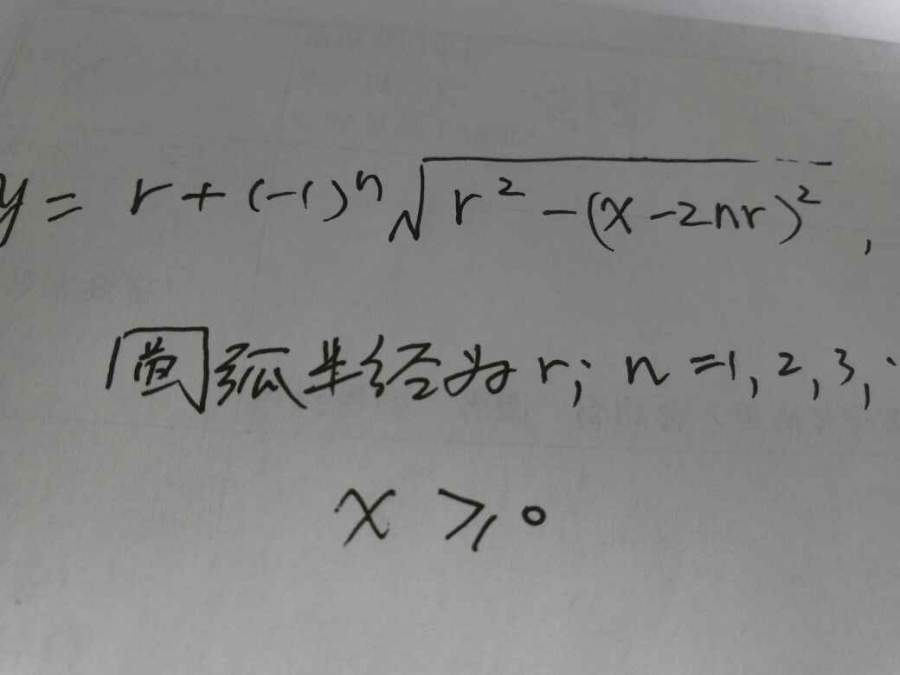 y = r + (-1)ⁿ√(r² - (x - 2nr)²) ,
圆弧半径为r; n = 1, 2, 3, ·
x ≥ 0